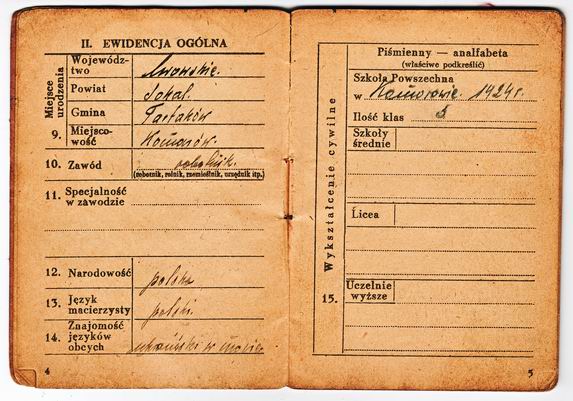 II. EWIDENCJA OGÓLNA
Miejsce urodzenia
Wojewódz-
two
Lwowskie.
Powiat
Sokal.
Gmina
Tartaków
9. Miejsco-
wość
Komarów.
10. Zawód
robotnik.
(robotnik, rolnik, rzemieślnik, urzędnik itp.)
11. Specjalność
w zawodzie
12. Narodowość
polska
13. Język
macierzysty
polski.
14. Znajomość
języków
obcych
ukraiński w
4
Piśmienny — analfabeta
(właściwe podkreślić)
Szkoła Powszechna
w Komarowie 1924 r.
Ilość klas
Szkoły
średnie
Licea
Uczelnie
wyższe
15.
Wykształcenie cywilne
5